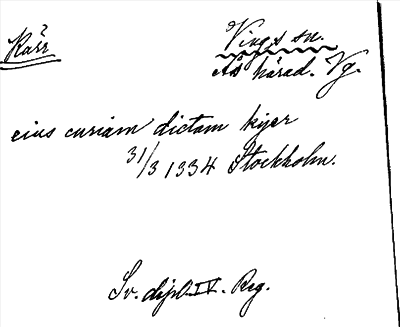 Kärr
Vings sn.
Ås härad. Vg.
eius curiam dictam kyer
31/3 1334 Stockholm.
Sv. dipl. IV. Reg.